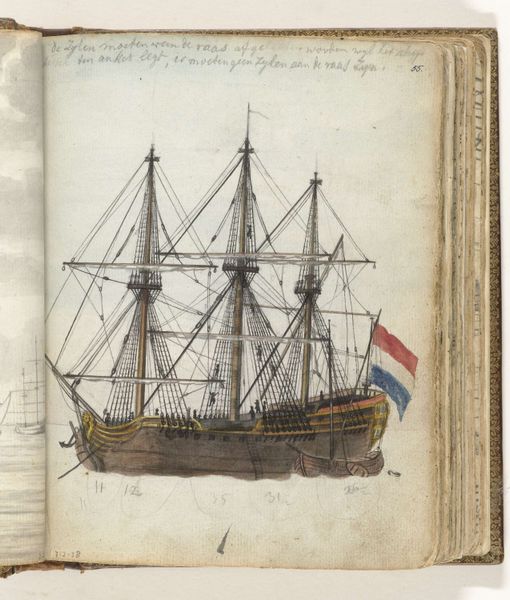 de Zylen moeten van de raas worden wyl het schip
ten anker legt, er moeten geen Zylen aan de raas Zyn.
55.
11 12 35 31
712-38